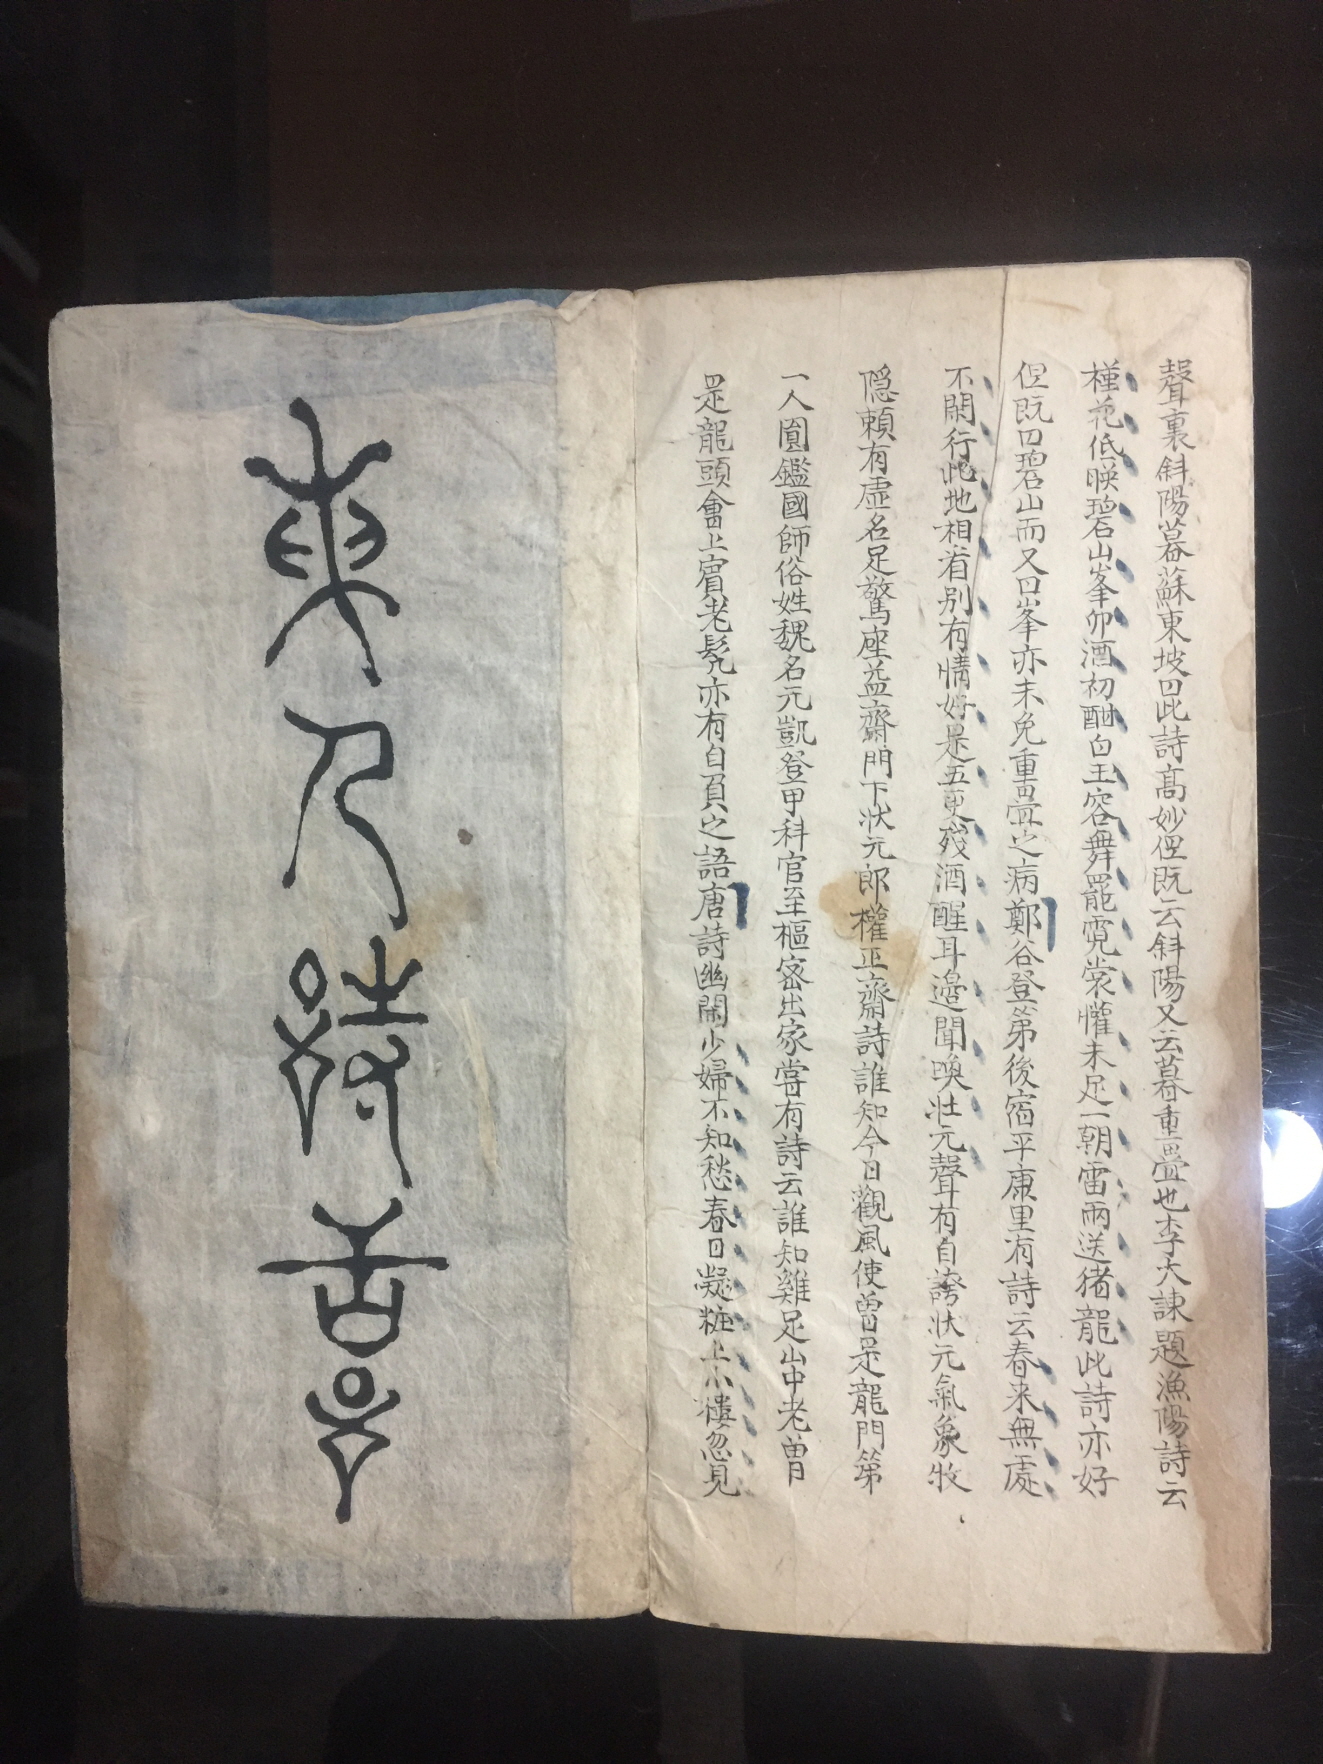 聲裏斜陽暮蘇東坡曰此詩高妙但既云斜陽又云暮重疊也李大諫題漁陽詩云
槿花低暎碧山峯卯酒初酣白玉容舞罷霓裳懽未足一朝雷雨送猪龍此詩亦好
但既曰碧山而又曰峯亦未免重疊之病鄭谷登第後宿平康里有詩云春来無處
不閑行此地相看別有情好是五更殘酒醒耳邊聞喚壯元聲有自誇狀元氣象牧
隱頼有虛名足驚座益齋門下狀元郎權正齋詩誰知今日觀風使曽是龍門第
一人圎鑑國師俗姓魏名元凱登甲科官至樞密出家嘗有詩云誰知雞足山中老曽
是龍頭會上賓老髡亦有自負之語唐詩幽閑少婦不知愁春日凝粧上小樓忽見